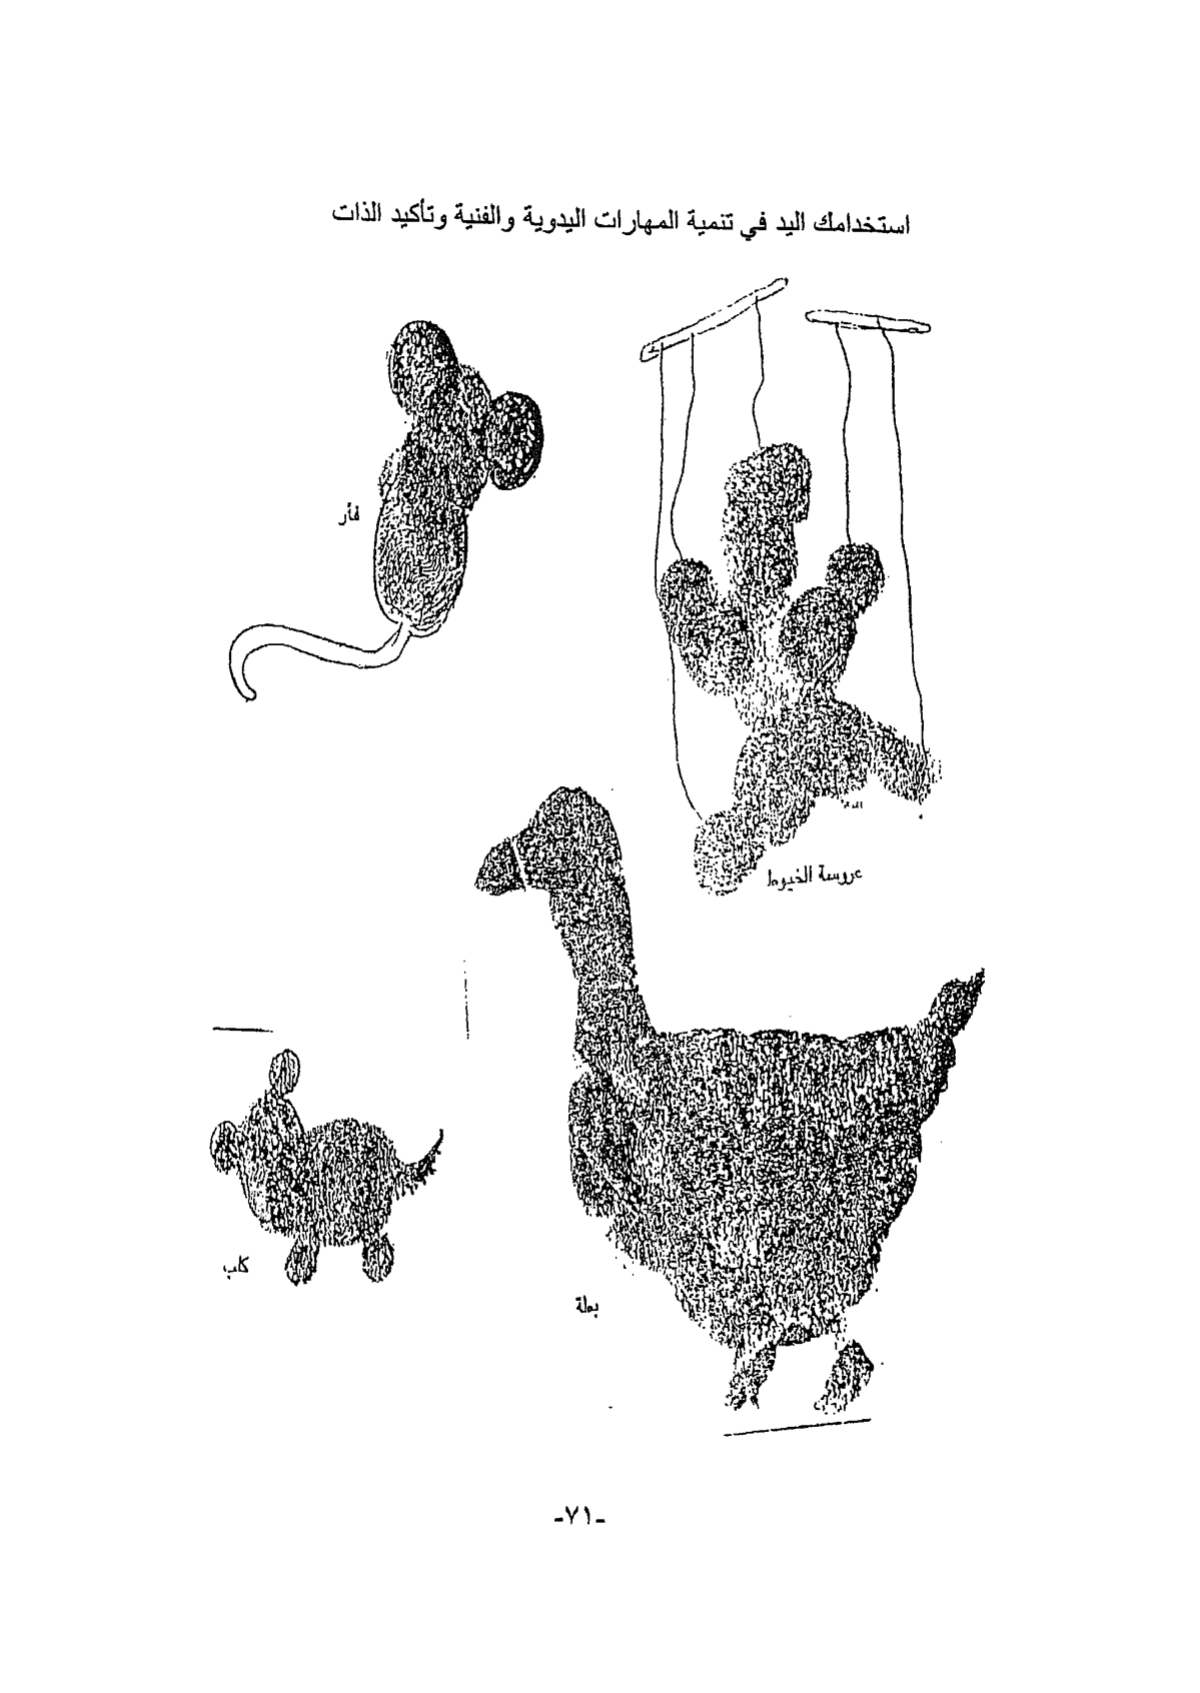 استخدامك اليد في تنمية المهارات اليدوية والفنية وتأكيد الذات
فأر
عروسة الخيوط
كلب
بطة
-٧١-